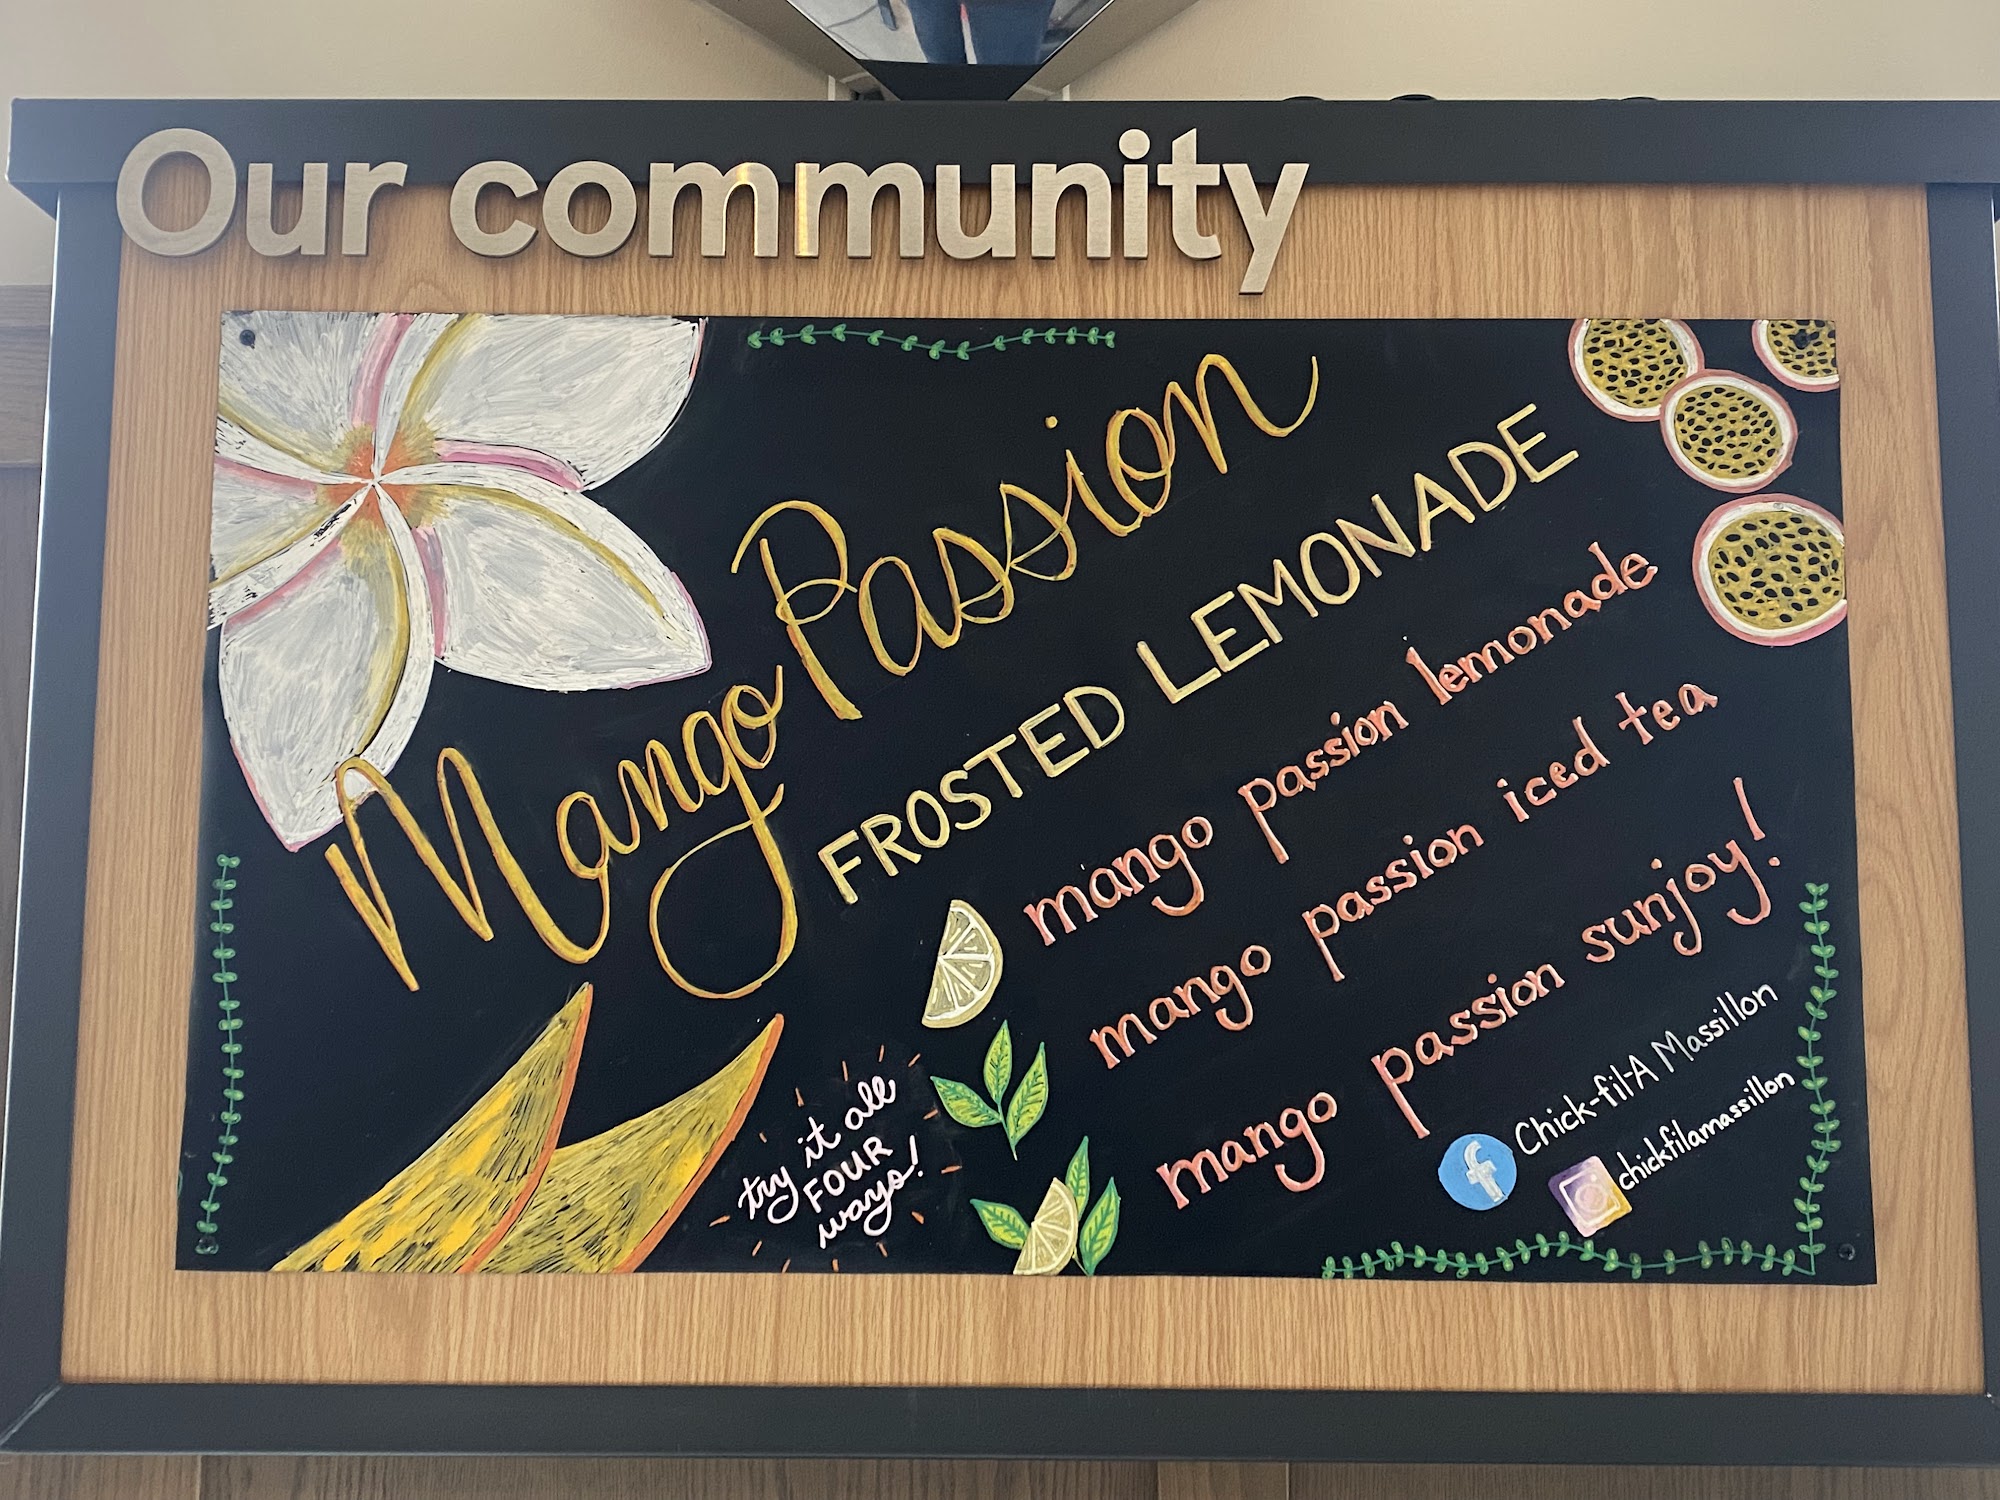 Our community
Mango Passion
FROSTED LEMONADE
mango passion lemonade
mango passion iced tea
mango passion sunjoy!
try it all
FOUR
ways!
f Chick-fil-A Massillon
chickfilamassillon